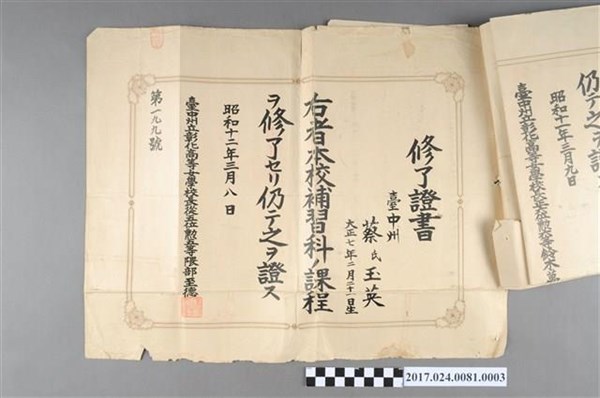 修了證書
臺中州
蔡氏玉英
大正七年二月二十一日生
右者本校補習科ノ課程
ヲ修了セリ仍テ之ヲ證ス
昭和十二年三月八日
臺中州立彰化高等女學校長從五位勲五等隈部至德
第一九九號
仍テ之ヲ證
昭和十一年三月九日
臺中州立彰化高等女學校長
2017.024.0081.0003